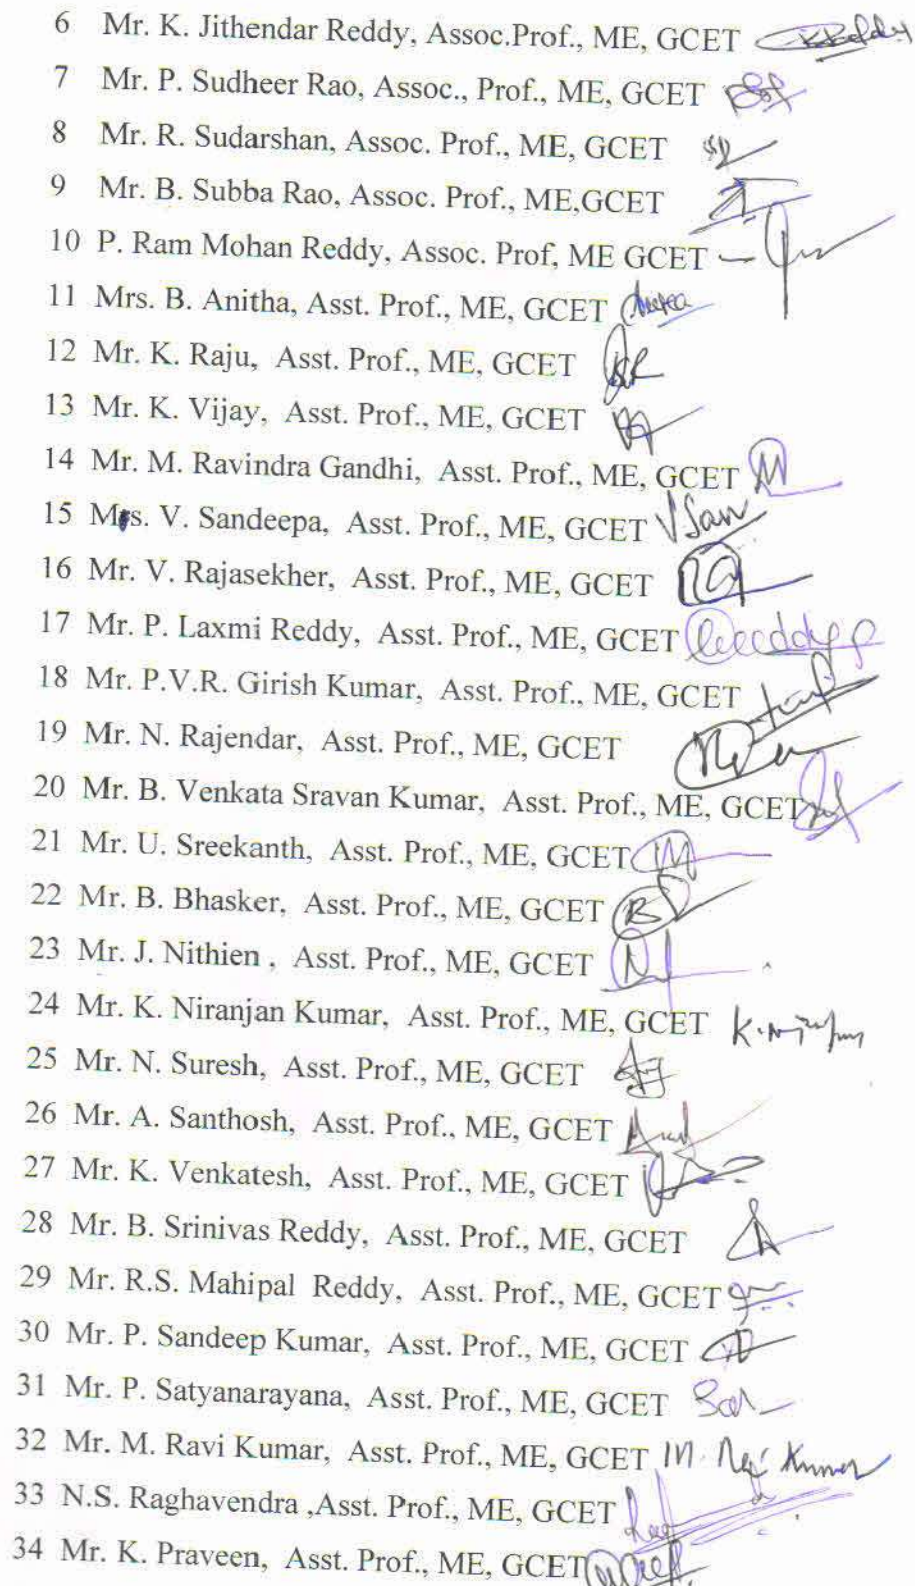 6 Mr. K. Jithendar Reddy, Assoc.Prof., ME, GCET KReddy
7 Mr. P. Sudheer Rao, Assoc., Prof., ME, GCET
8 Mr. R. Sudarshan, Assoc. Prof., ME, GCET
9 Mr. B. Subba Rao, Assoc. Prof., ME,GCET
10 P. Ram Mohan Reddy, Assoc. Prof, ME GCET
11 Mrs. B. Anitha, Asst. Prof., ME, GCET
12 Mr. K. Raju, Asst. Prof., ME, GCET KR
13 Mr. K. Vijay, Asst. Prof., ME, GCET
14 Mr. M. Ravindra Gandhi, Asst. Prof., ME, GCET
15 Mrs. V. Sandeepa, Asst. Prof., ME, GCET V San
16 Mr. V. Rajasekher, Asst. Prof., ME, GCET
17 Mr. P. Laxmi Reddy, Asst. Prof., ME, GCET
18 Mr. P.V.R. Girish Kumar, Asst. Prof., ME, GCET
19 Mr. N. Rajendar, Asst. Prof., ME, GCET
20 Mr. B. Venkata Sravan Kumar, Asst. Prof., ME, GCET
21 Mr. U. Sreekanth, Asst. Prof., ME, GCET
22 Mr. B. Bhasker, Asst. Prof., ME, GCET B
23 Mr. J. Nithien , Asst. Prof., ME, GCET N
24 Mr. K. Niranjan Kumar, Asst. Prof., ME, GCET
25 Mr. N. Suresh, Asst. Prof., ME, GCET
26 Mr. A. Santhosh, Asst. Prof., ME, GCET
27 Mr. K. Venkatesh, Asst. Prof., ME, GCET
28 Mr. B. Srinivas Reddy, Asst. Prof., ME, GCET
29 Mr. R.S. Mahipal Reddy, Asst. Prof., ME, GCET
30 Mr. P. Sandeep Kumar, Asst. Prof., ME, GCET
31 Mr. P. Satyanarayana, Asst. Prof., ME, GCET
32 Mr. M. Ravi Kumar, Asst. Prof., ME, GCET M. Ravi Kumar
33 N.S. Raghavendra ,Asst. Prof., ME, GCET
34 Mr. K. Praveen, Asst. Prof., ME, GCET